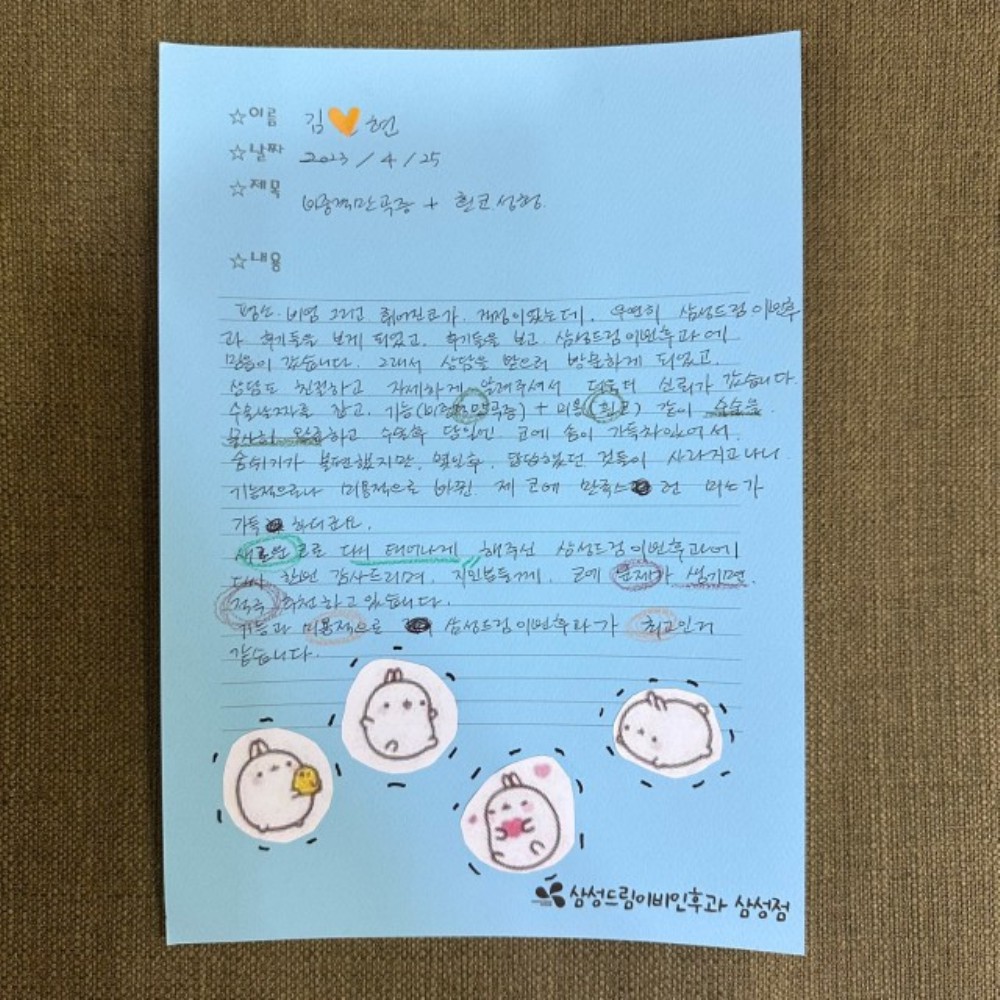 ☆이름 김🧡현
☆날짜 2023 / 4 / 25
☆제목 비중격만곡증 + 휜코 성형.
☆내용
평소 비염 그리고 휘어진 코가, 걱정이었는데, 우연히 삼성드림이비인후
과 후기들을 보게 되었고, 후기들을 보고, 삼성드림이비인후과에
믿음이 갔습니다. 그래서 상담을 받으러 방문하게 되었고,
상담도 친절하고 자세하게 알려주셔서 더욱더 신뢰가 갔습니다.
수술날짜를 잡고, 기능(비중격만곡증) + 미용(휜코) 같이 수술을
무사히 완료하고 수술후 당일엔 코에 솜이 가득차있어서
숨쉬기가 불편했지만, 몇일후, 답답했던 것들이 사라지고나니
기능적으로나 미용적으로 바뀐 제 코에 만족스런 미소가
가득 하더군요.
새로운 코로 다시 태어나게 해주신 삼성드림이비인후과에
다시 한번 감사드리며, 지인분들께, 코에 문제가 생기면.
적극 추천하고 있습니다.
기능과 미용적으로 삼성드림이비인후과가 최고인거
같습니다.
삼성드림이비인후과 삼성점